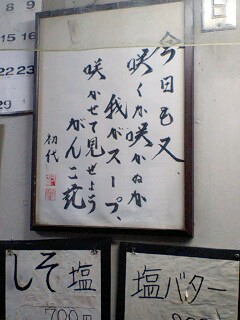 今日も又
咲くか咲かぬか
我がスープ、
咲かせて見せよう
がんこ花
初代
しそ塩
700円
塩バター
日
1
8
14 15
22
28 29